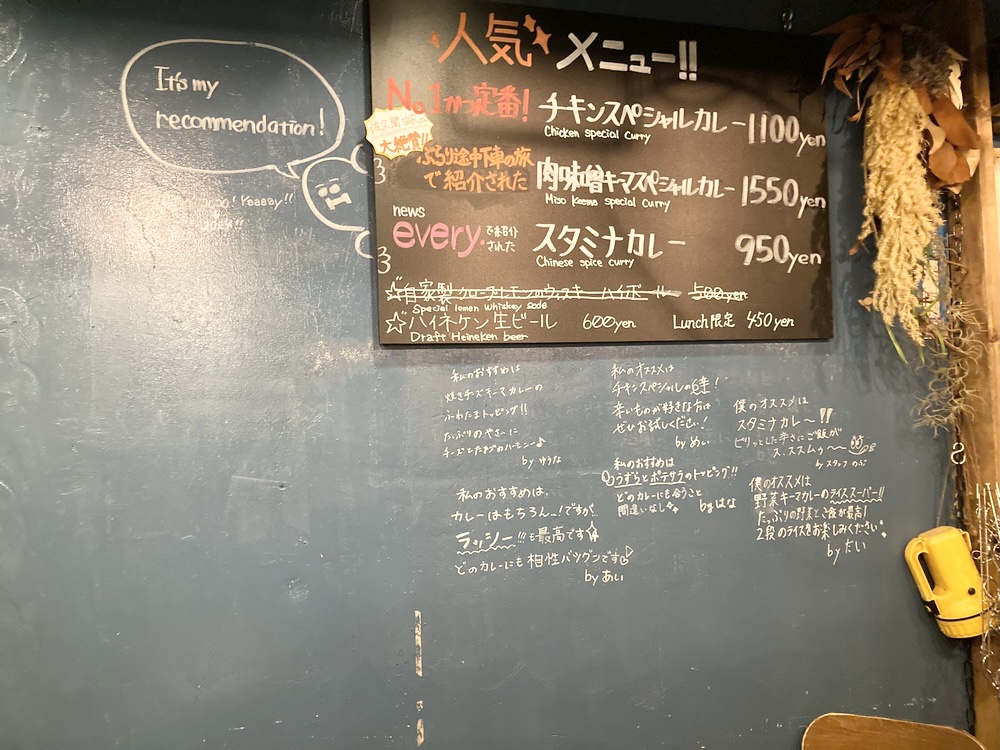 It's my
recommendation!
人気メニュー!!
No.1かつ定番!
チキンスペシャルカレー 1100yen
Chicken special Curry
大絶賛!!
ぶらり途中下車の旅
で紹介された
肉味噌キーマスペシャルカレー 1550yen
Miso Keema special curry
news
every.で紹介
された
スタミナカレー 950yen
Chinese spice curry
☆自家製クローブレモンのウィスキーハイボール 500yen
Special lemon whiskey soda
☆ハイネケン生ビール 600yen Lunch限定 450yen
Draft Heineken beer
私のおすすめは
焼きチーズキーマカレーの
ふわたまトッピング!!
たっぷりのやさいに
チーズとたまごのハーモニー♪
by ゆうな
私のおすすめは、
カレーはもちろん..!ですが、
ラッシー!!!も最高です☆
どのカレーにも相性バツグンです♡
by あい
私のオススメは
チキンスペシャルの6辛!
辛いものが好きな方は
ぜひお試しください!
by めい
私のおすすめは
うずらとポテサラのトッピング!!
どのカレーにも合うこと
間違いなし
by はな
僕のオススメは
スタミナカレ〜!!
ピリッとした辛さにご飯が
ス、ススムゥ〜
by スタッフ のぶ
僕のオススメは
野菜キーマカレーのライススーパー!!
たっぷりの野菜とご飯が最高!
2段のライスをお楽しみください!
by たい